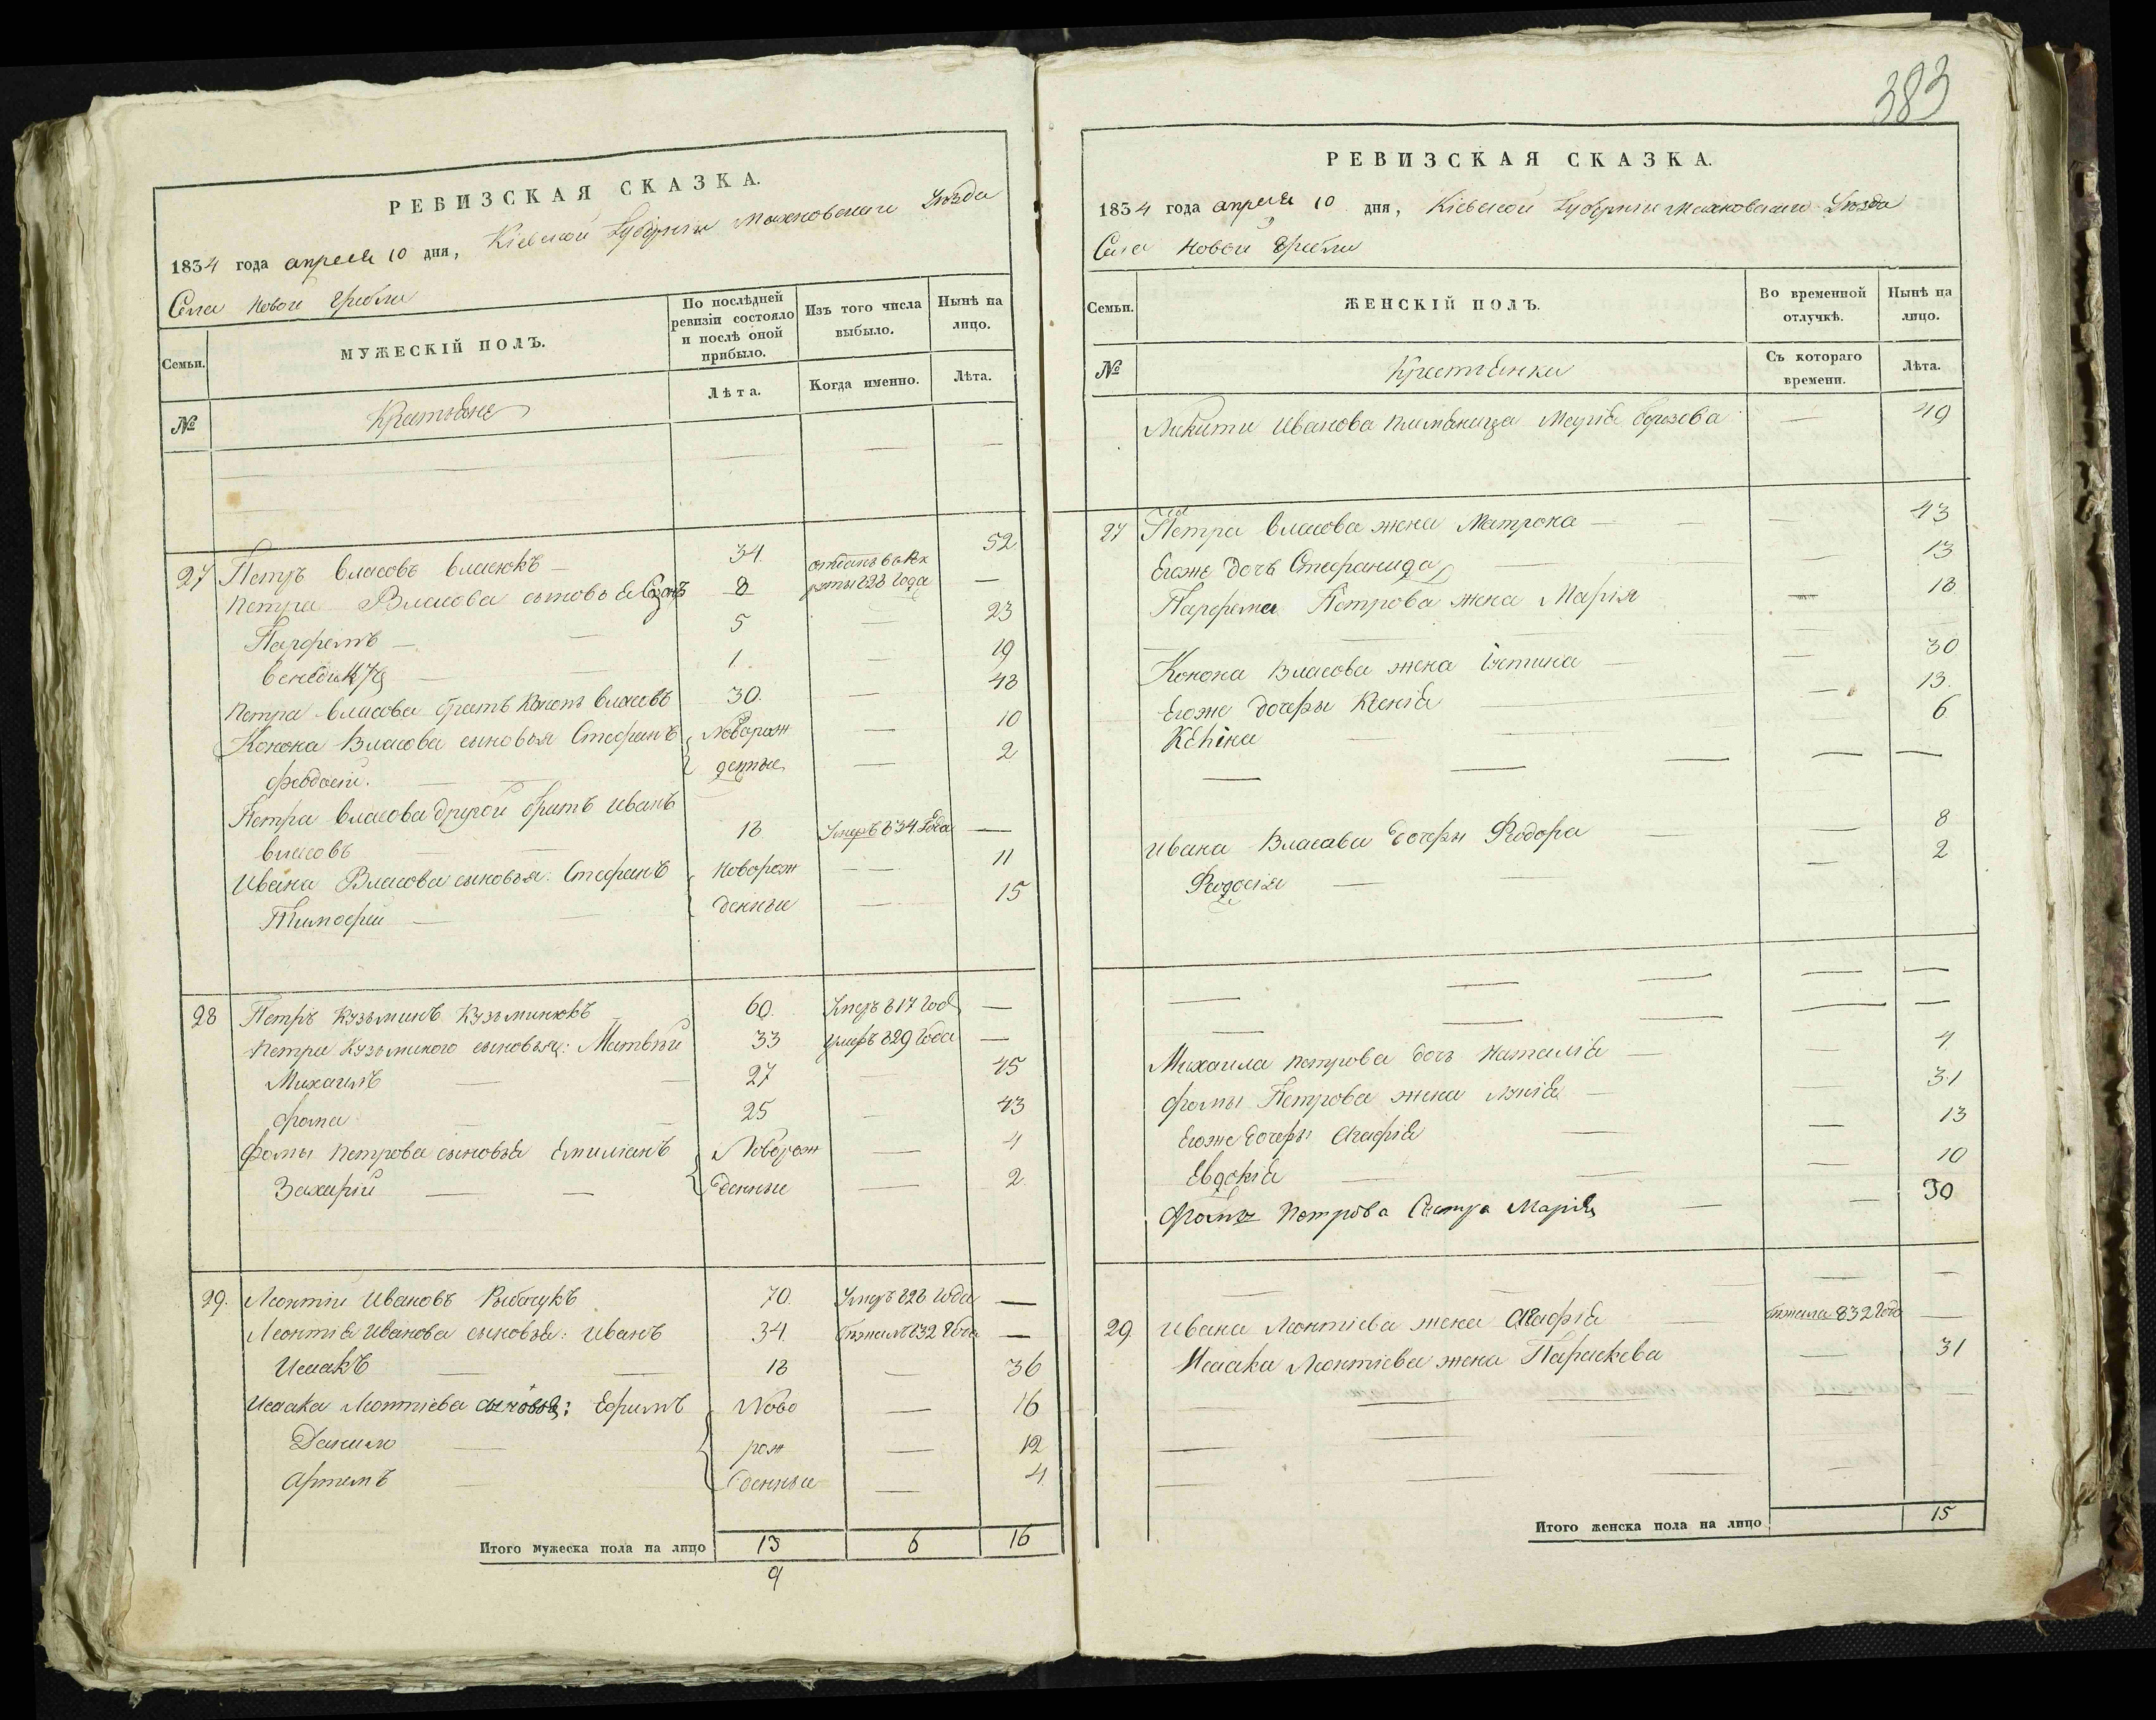 383
РЕВИЗСКАЯ СКАЗКА.
1834 года апреля 10 дня, Кіевской Губерніи Махновскаго Уѣзда
Села Новой Гребли
Семьи. МУЖЕСКІЙ ПОЛЪ. По послѣдней ревизіи состояло и послѣ оной прибыло. Изъ того числа выбыло. Нынѣ на лицо.
№ Крестьяне Лѣта. Когда именно. Лѣта.
27 Петръ Власовъ Власюкъ — 34. — 52
Петра Власова сыновья 8 отданъ въ рекруты 828 года —
Парфемъ — 5 — 23
Венедиктъ — 1. — 19
Петра Власова братъ Кононъ Власовъ 30. — 48
Конона Власова сыновья Стефанъ Новорож — 10
Феодосій. — денные — 2
Петра Власова другой братъ Иванъ
Власовъ — 18 Умеръ 834 Года —
Ивана Власова сыновья: Стефанъ Новорож — 11
Тимофей — денные — 15
28 Петръ Кузьминъ Кузьминюкъ 60. Умеръ 817 год —
Петра Кузьминого сыновья: Матвѣй 33 умеръ 829 Года —
Михаилъ — 27 — 45
Фома — 25 — 43
Фомы Петрова сыновья Емиліанъ Новорож — 4
Захарій — денные — 2.
29. Леонтій Ивановъ Рыбачукъ 70. Умеръ 828 Года —
Леонтія Иванова сыновья: Иванъ 34. бѣжалъ 832 Года —
Исаакъ — 18 — 36
Исаака Леонтіева сыновья: Ефимъ Ново — 16
Данило — рож — 12
Артемъ — денные — 4.
Итого мужеска пола на лицо 13 6 16
9
РЕВИЗСКАЯ СКАЗКА.
1834 года апреля 10 дня, Кіевской Губерніи Махновскаго Уѣзда
Села Новой Гребли
Семьи. ЖЕНСКІЙ ПОЛЪ. Во временной отлучкѣ. Нынѣ на лицо.
№ Крестьянки Съ котораго времени. Лѣта.
Никиты Иванова племяница Марія — 49
27 Петра Власова жена Матрона — 43
Егоже дочь Стефанида — 13
Парфема Петрова жена Марія — 18
Конона Власова жена Устина — 30
Егоже дочеры Ксенія — 13.
— 6
Ивана Власова дочеры Федора — 8
Федосія — 2
Михаила Петрова дочь Наталія — 4
Фомы Петрова жена — 31
Егоже дочеры Агафія — 13
Евдокія — 10
Фомы Петрова Сестра Марія — 30
29. Ивана Леонтіева жена Агафія бѣжала 832 Года —
Исаака Леонтіева жена Параскева — 31
Итого женска пола на лицо 15